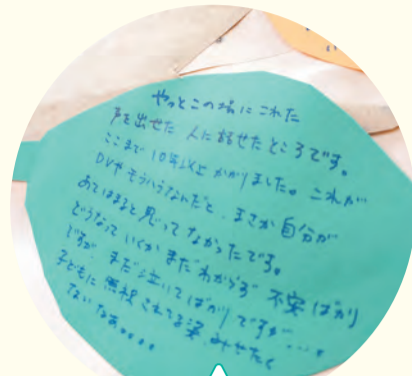 やっとこの場にこれた
声を出せた 人に話せたところです。
ここまで10年以上かかりました。これが
DVやモラハラなんだと、まさか自分が
あてはまると思ってなかったです。
どうなっていくかまだわからず 不安ばかり
ですが、まだ泣いてばかりですが‥‥
子どもに無視されてる姿、みせたく
ないなぁ‥‥